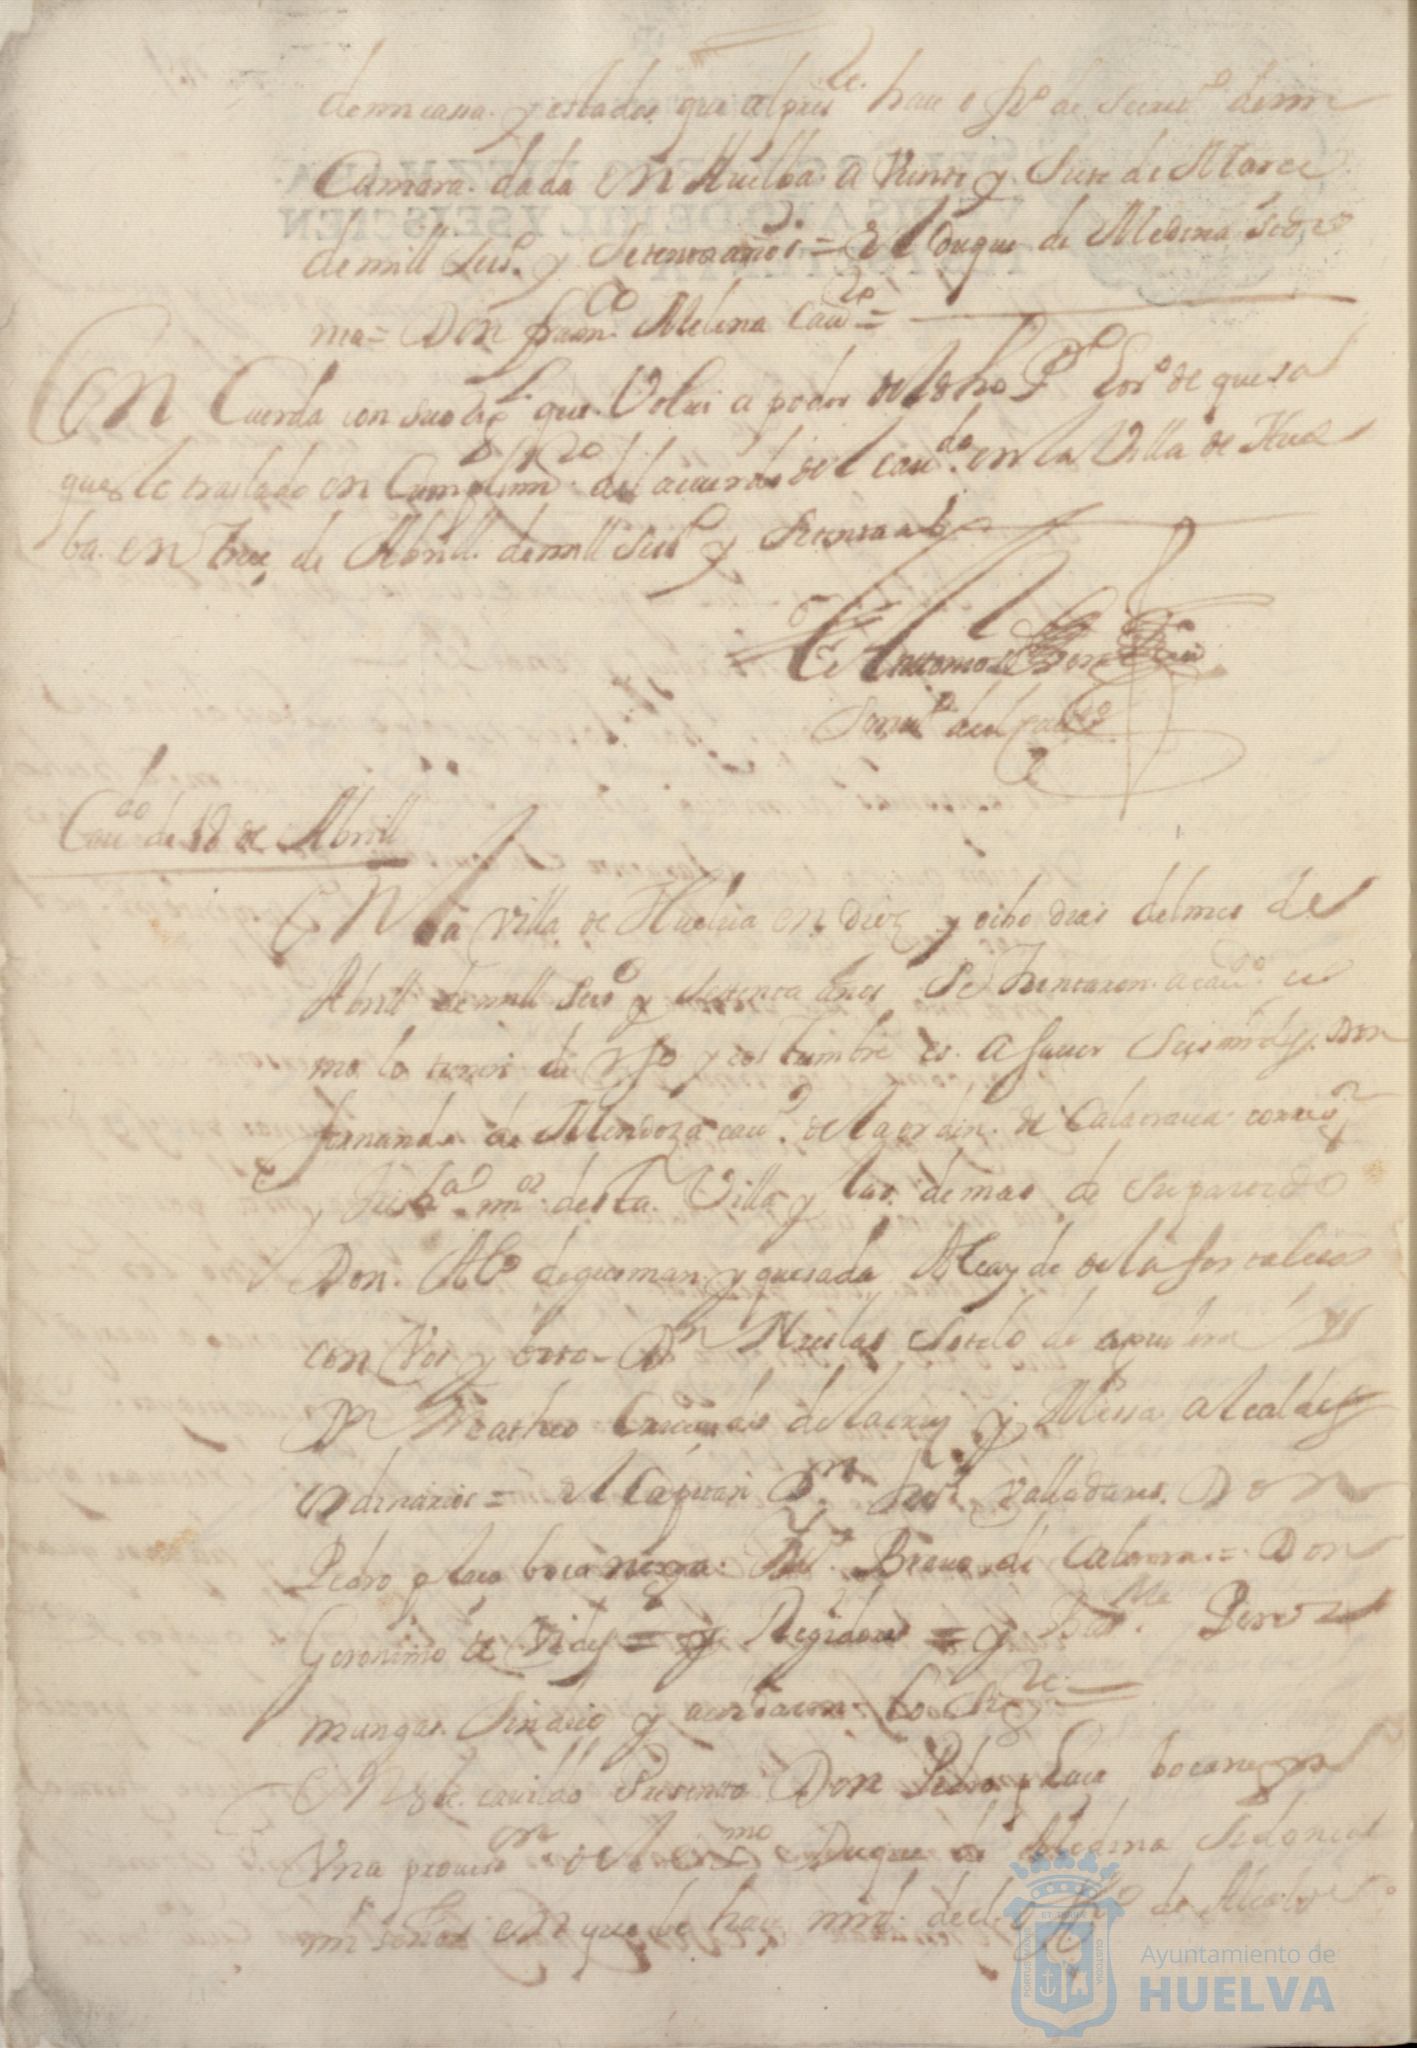 de mi cassa y estados que al press.te hace offi.o de secret.o de mi
Camara dada en Huelba a Veinte y Siete de Março
de mill seis.os y setenta años = El Duque de Medina sido
nia = Don fran.co Melena Cau.ro =
Con Cuerda con su orig.l que Volui a poder del dho D. P.o Lor.o de quesa
que le traslado en Cumplim.to del acuerdo del cau.do en la Villa de Huel
ba en trece de Abrill de mill seis.os y setenta a.s
Antonio de
Scriu.o del cau.do
Cau.do de 18 de Abrill
En la villa de Huelua en diez y ocho dias del mes de
Abrill de mill seis.os y setenta años se Juntaron a cau.do co
mo lo tienen de Vso y costumbre es a sauer sus mrds. Don
fernando de Mendoza cau.o de la orden de Calatraua correg.r
y Just.a m.or desta Villa y las demas de su partido
Don Al.o de gusman y quesada Alcayde de la fortaleza
con Vos y boto = D.n Nicolas Sotelo de aguilera y
D.n Matheo de la cruz y Messa alcaldes
ordinarios = el Capitan D.n Valladares Don
Pedro ponce bocanegra Brauo de Cabrera = Don
Geronimo de Vides = y Regidores = y Bar.me Perez
mungas Sindico y acordaron lo sig.te
En este cauildo Presento Don Pedro ponce bocanegra
Vna prouiss.on del ex.mo Duque de Medina Sidonia
mi señor en que le hace mrd. del offi.o de Alcalde
Ayuntamiento de
HUELVA
PORTUS MARIS
ET TERRAE
CUSTODIA